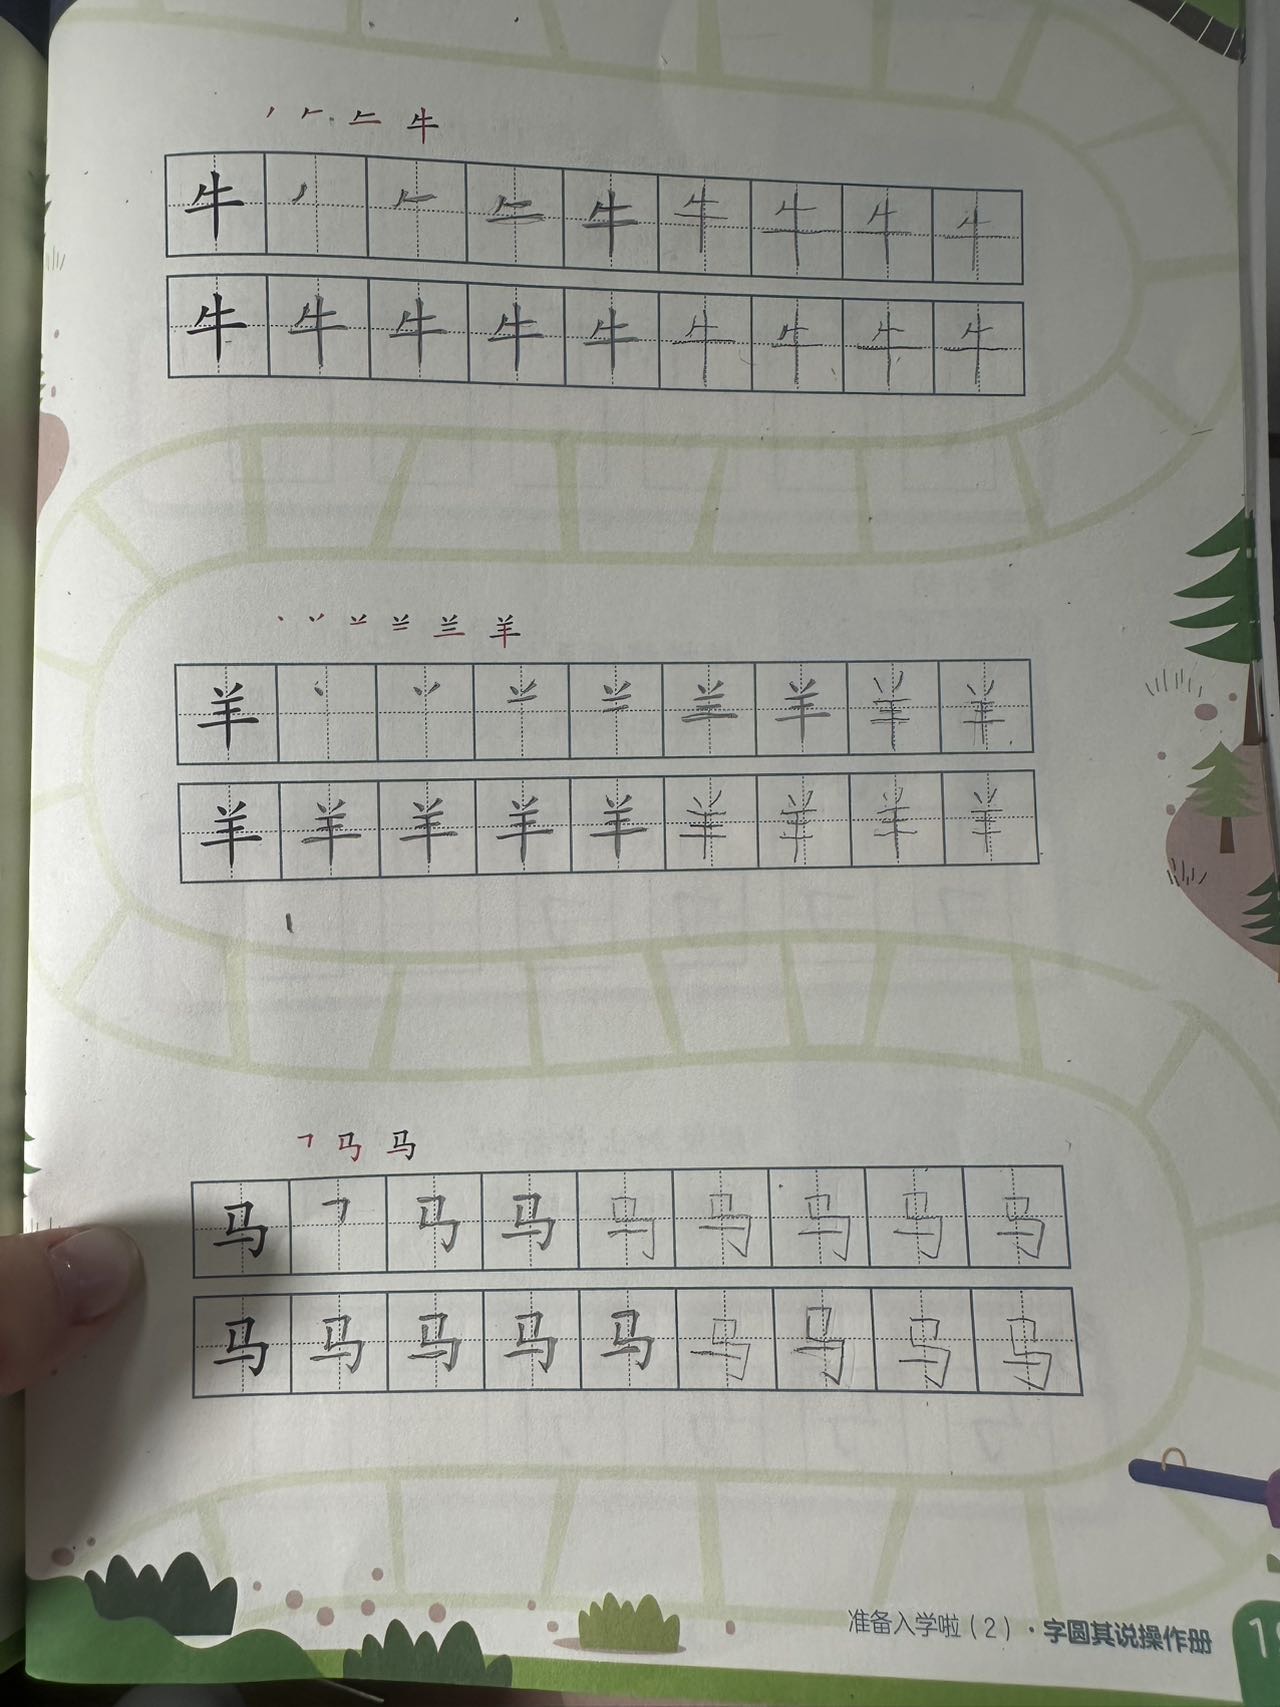 丿 𠂉 牛
牛 丿 𠂉 牛 牛 牛 牛 牛
牛 牛 牛 牛 牛 牛 牛 牛 牛
丶 丷 羊
羊 丶 丷 羊 羊 羊
羊 羊 羊 羊 羊 羊 羊 羊 羊
㇕ 马
马 ㇕ 马 马 马 马 马 马
马 马 马 马 马 马 马 马 马
准备入学啦(2)·字圆其说操作册